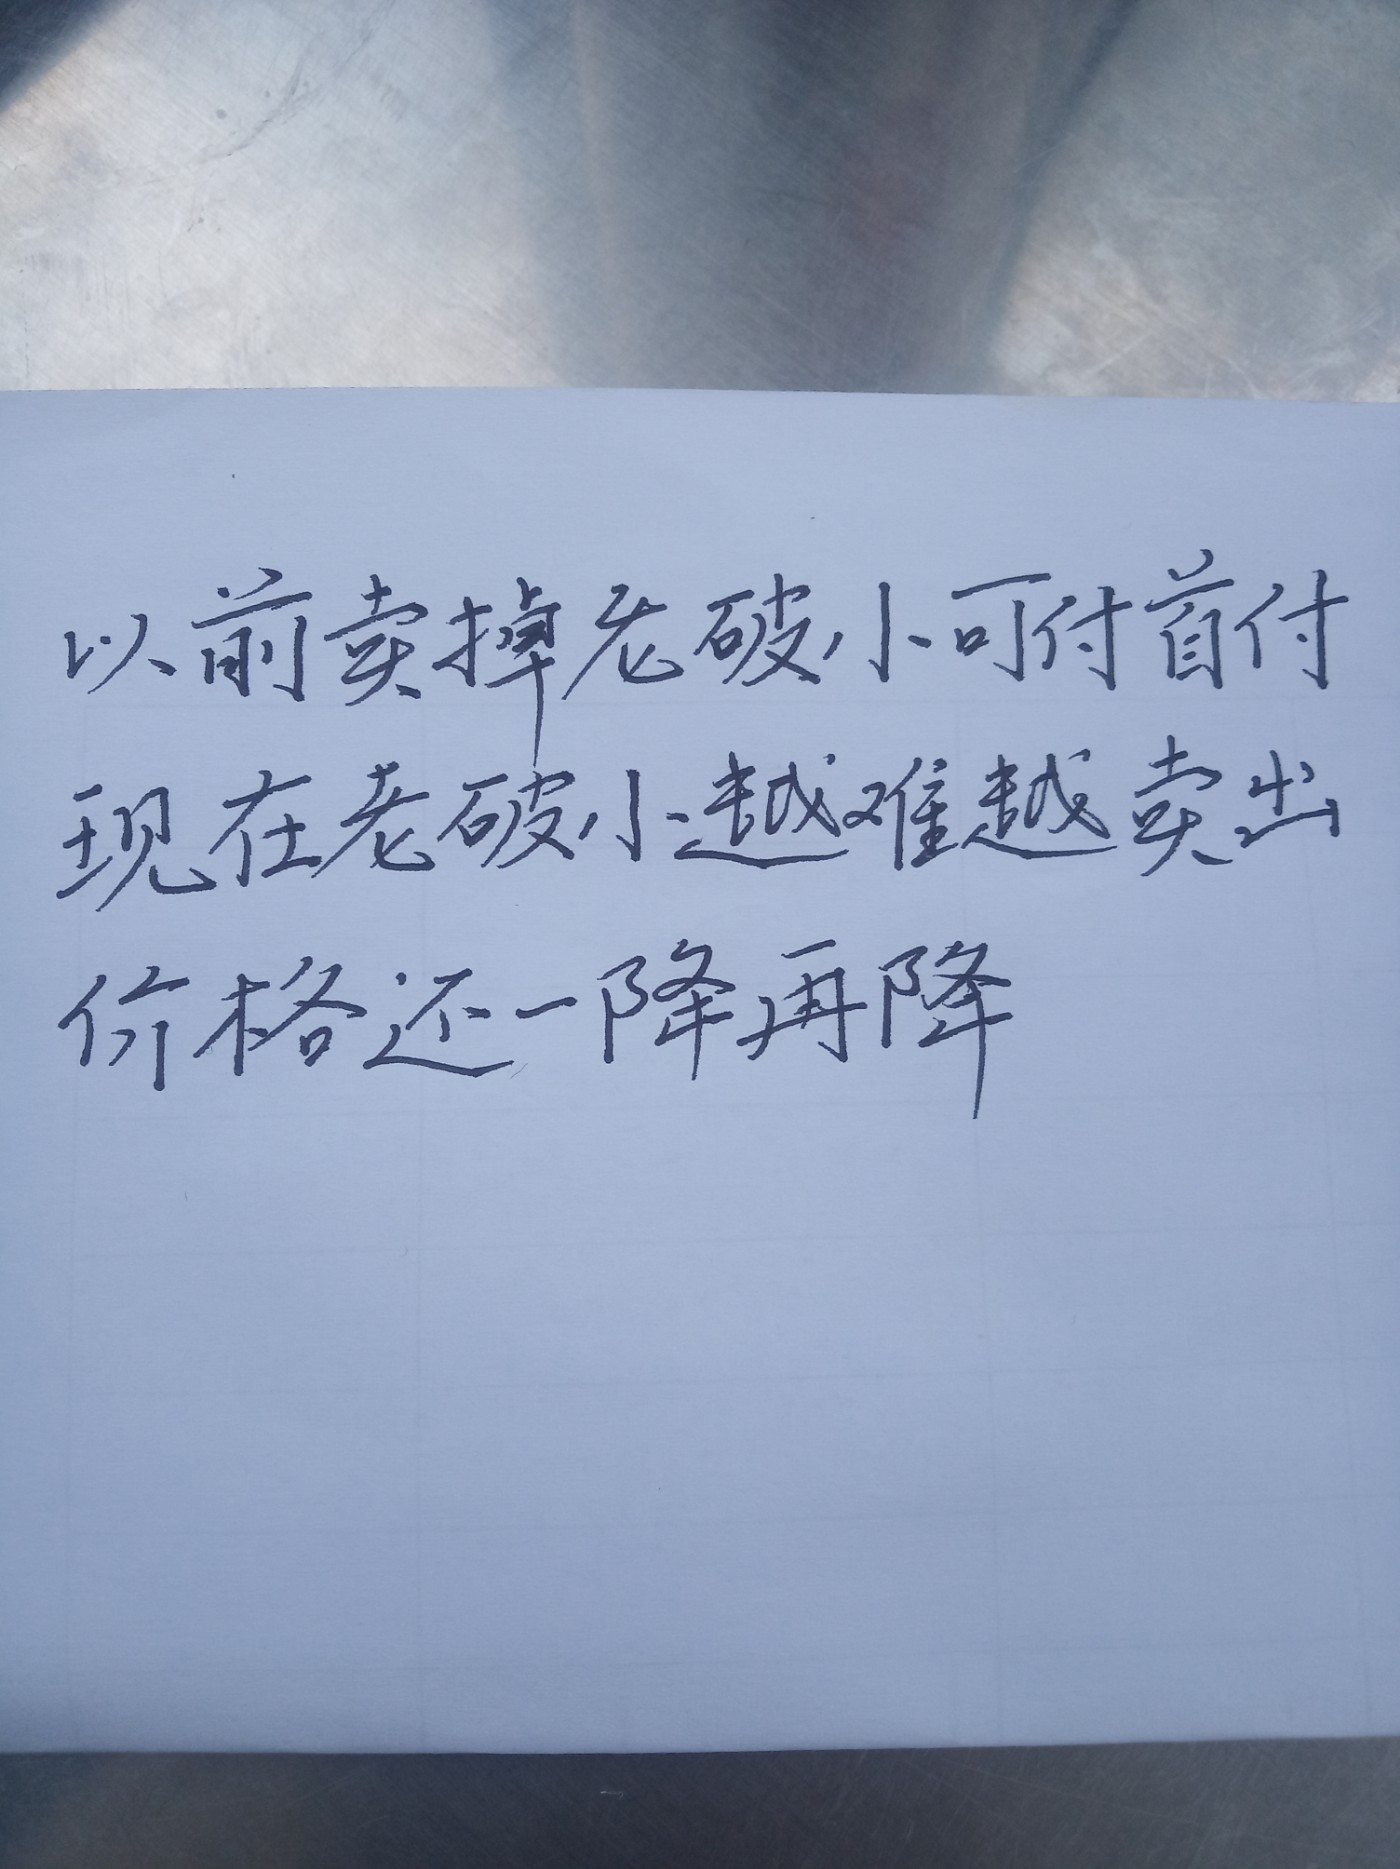 以前卖掉老破小可付首付
现在老破小越难越卖出
价格还一降再降